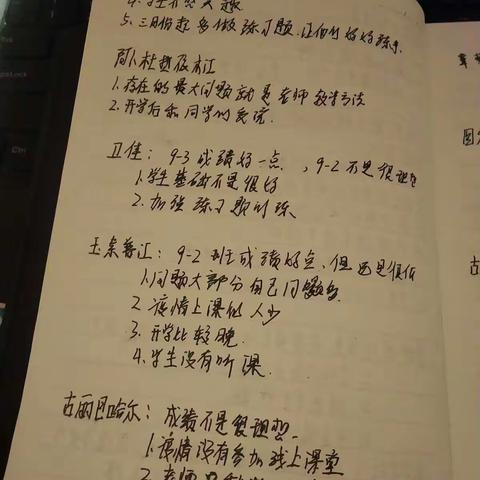 5. 三月份起多做练习题,让他们好好练习.
阿卜杜热
1. 存在的最大问题就是老师教学方法
2. 开学后和同学们交流.
卫佳: 9-3成绩好一点, 9-2不是很理想
1. 学生基础不是很好
2. 加强练习题训练
9-2班成绩好点, 但还是很低
1. 问题大部分自己问题多.
2. 疫情上课的人少
3. 开学比较晚.
4. 学生没有听课.
古丽巴哈尔: 成绩不是很理想.
1. 疫情没有参加线上课堂
2. 老师